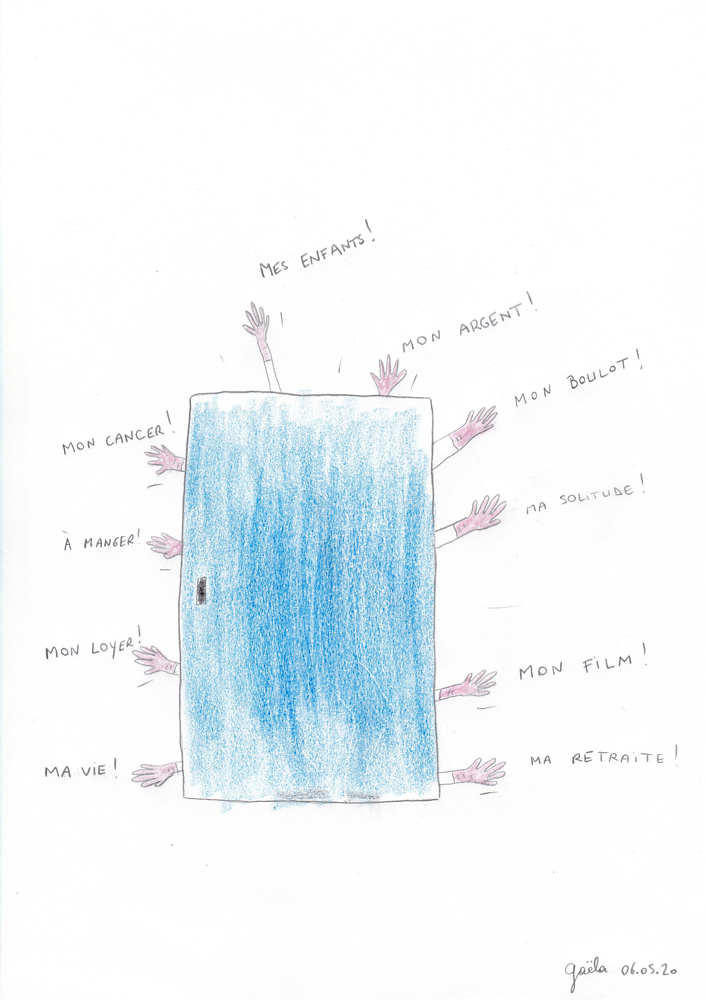 MES ENFANTS!
MON ARGENT!
MON BOULOT!
MON CANCER!
MA SOLITUDE!
À MANGER!
MON LOYER!
MON FILM!
MA VIE!
MA RETRAITE!
gaëla 06.05.20